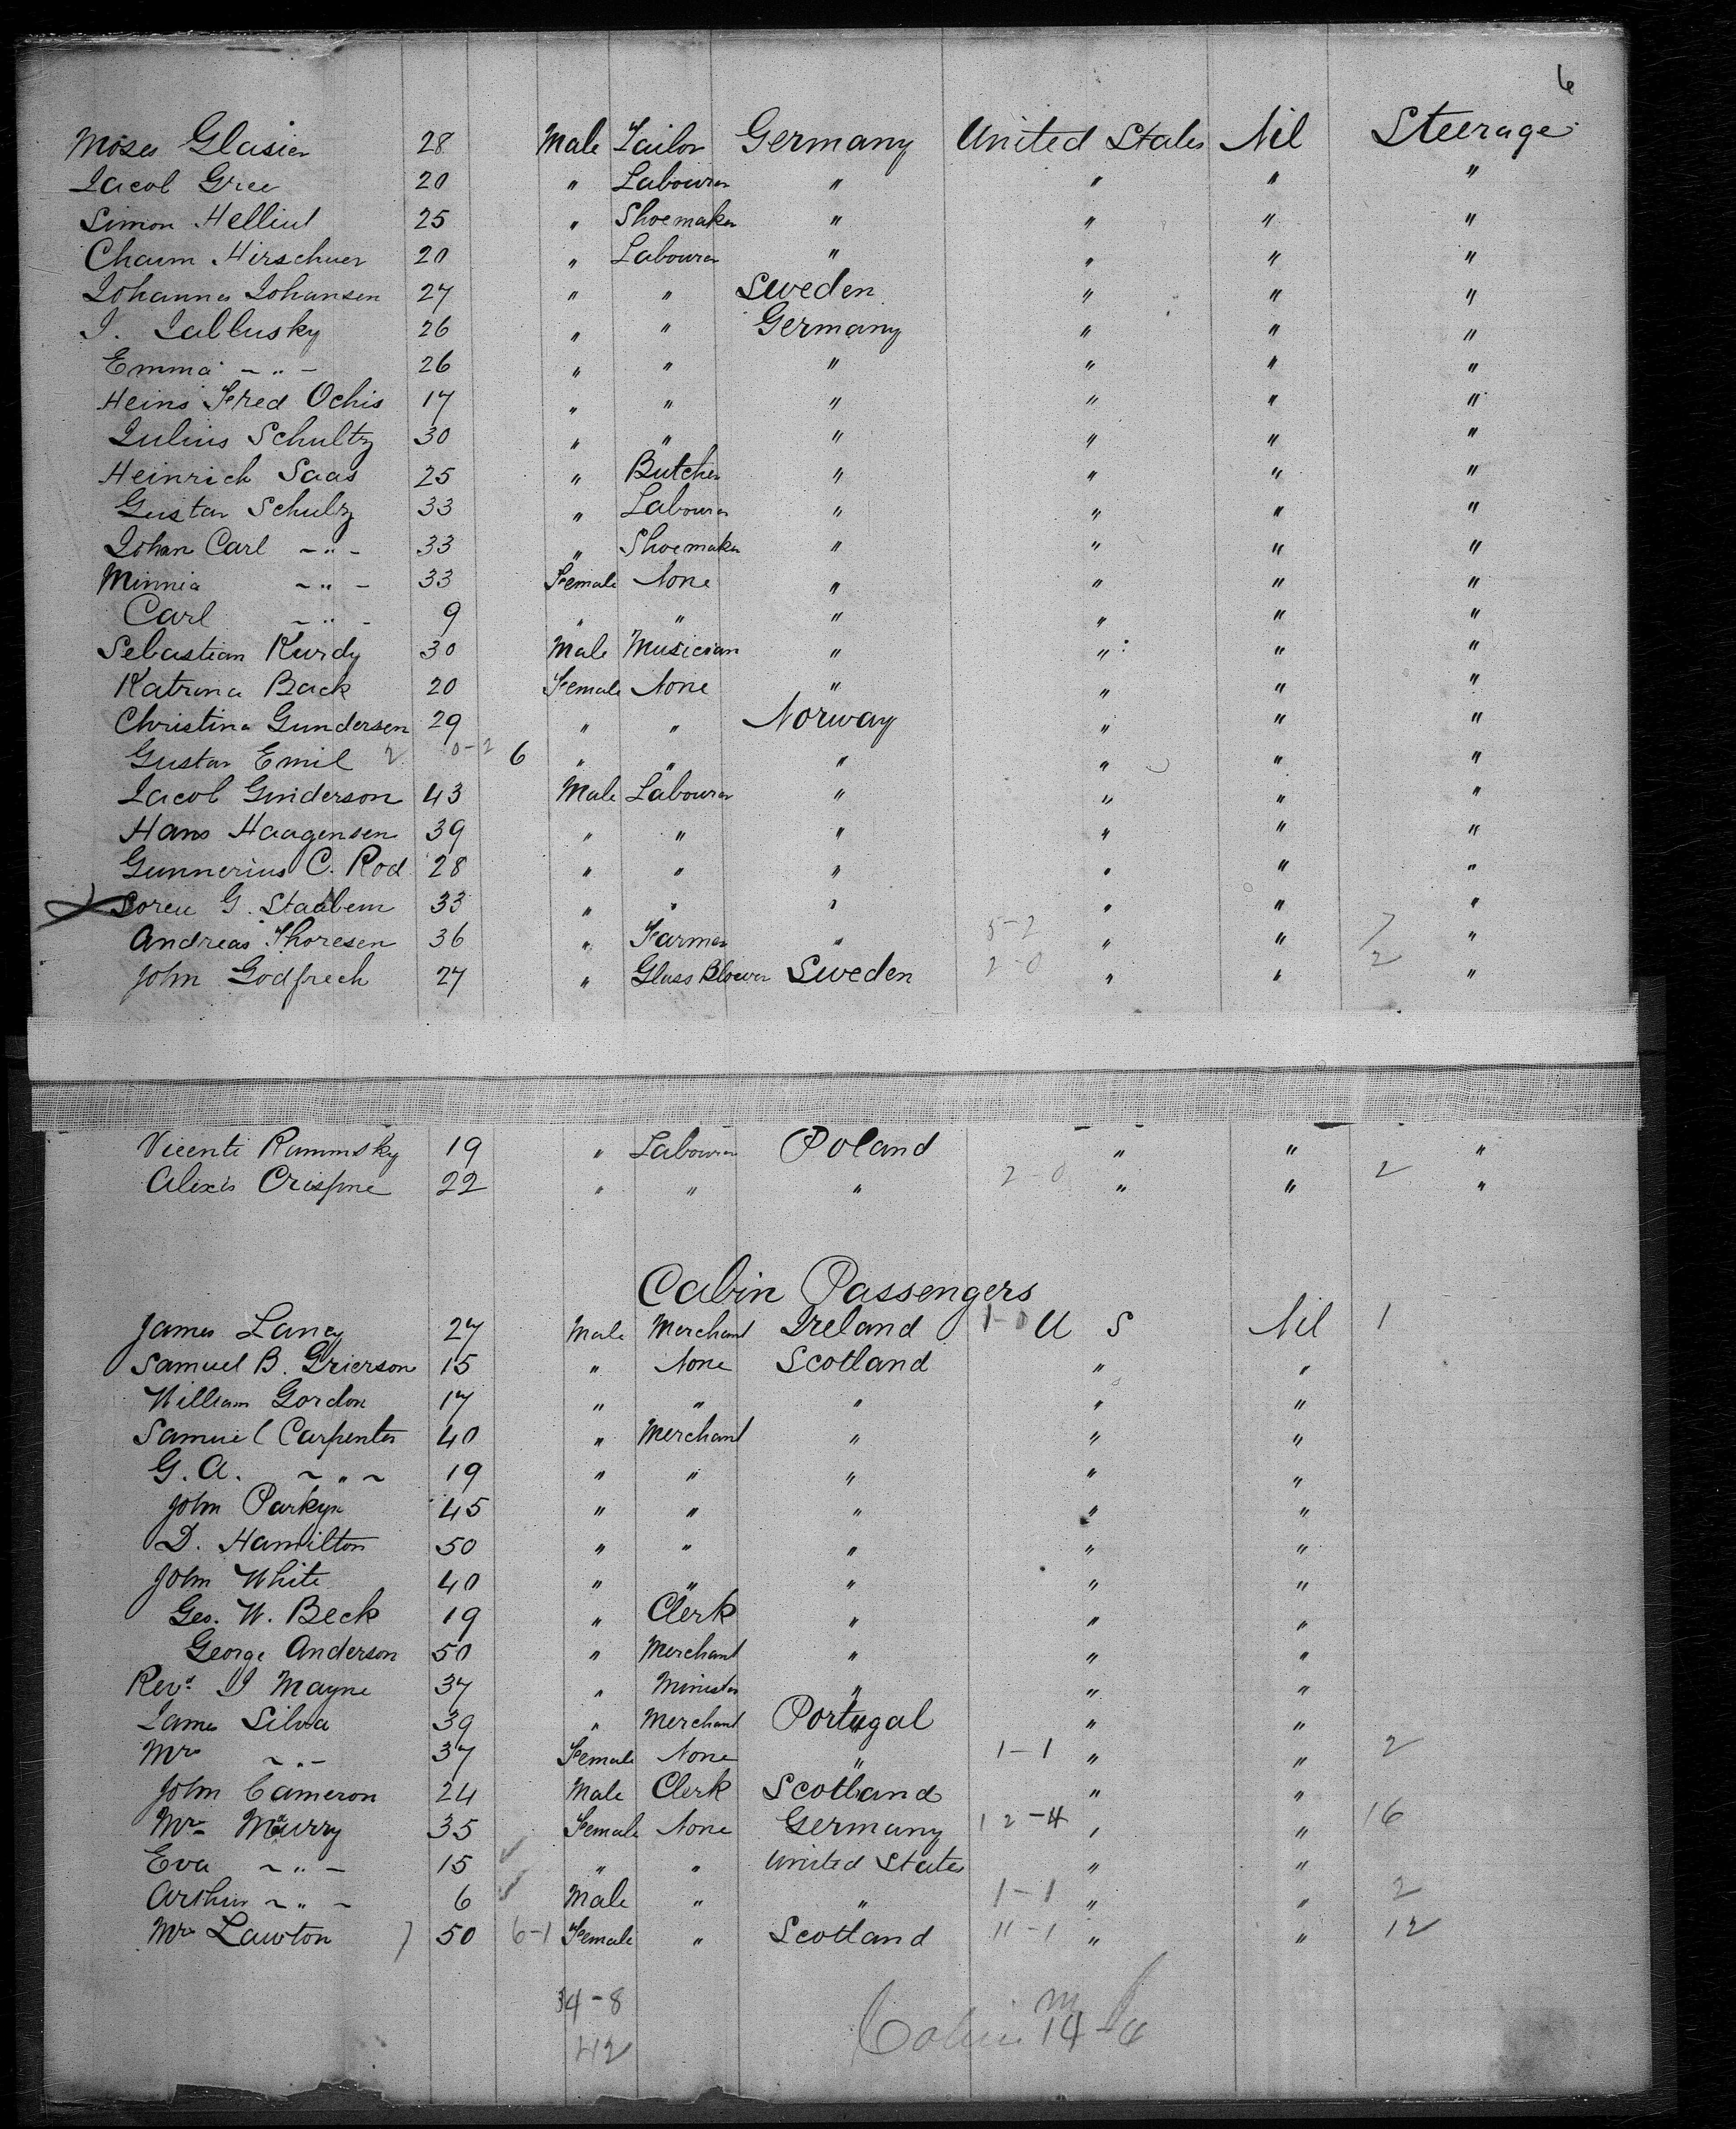 6
Moses Glasier 28 Male Tailor Germany United States Nil Steerage
Jacob Gree 20 " Labourer " " " "
Simon Helliul 25 " Shoemaker " " " "
Chaim Hirschuer 20 " Labourer " " " "
Johannes Johansen 27 " " Sweden " " "
J. Jablusky 26 " " Germany " " "
Emma - " - 26 " " " " " "
Heins Fred Ochis 17 " " " " " "
Julius Schultz 30 " " " " " "
Heinrich Saas 25 " Butcher " " " "
Gustav Schultz 33 " Labourer " " " "
Johan Carl - " - 33 " Shoemaker " " " "
Minnia - " - 33 Female None " " " "
Carl - " - 9 " " " " " "
Sebastian Kurdy 30 Male Musician " " " "
Katrina Back 20 Female None " " " "
Christina Gundersen 29 " " Norway " " "
Gustav Emil 2 0-2 6 " " " " " "
Jacob Gunderson 43 Male Labourer " " " "
Hans Haagensen 39 " " " " " "
Gunnerius C. Rod 28 " " " " " "
Soren G. Staabem 33 " " " " " "
Andreas Thoresen 36 " Farmer " 5-2 " " 7 "
John Godfrech 27 " Glass Blower Sweden 2-0 " " 2 "
Vicenti Rammsky 19 " Labourer Poland " " "
Alexis Crispine 22 " " " 2-0 " " 2 "
Cabin Passengers
James Laney 27 Male Merchant Ireland 1-0 U S Nil 1
Samuel B. Grierson 15 " None Scotland " "
William Gordon 17 " " " " "
Samuel Carpenter 40 " Merchant " " "
G. A. - " - 19 " " " " "
John Parkyn 45 " " " " "
D. Hamilton 50 " " " " "
John White 40 " " " " "
Geo. W. Beck 19 " Clerk " " "
George Anderson 50 " Merchant " " "
Revd. J Mayne 37 " Minister " " "
James Silva 39 " Merchant Portugal " "
Mrs - " - 37 Female None " 1-1 " " 2
John Cameron 24 Male Clerk Scotland " "
Mrs Murry 35 Female None Germany 12-4 " " 16
Eva - " - 15 " " United States " "
Arthur - " - 6 Male " " 1-1 " " 2
Mrs Lawton 7 50 6-1 Female " Scotland 11-1 " " 12
34-8
42
m f
Cabin 14-6